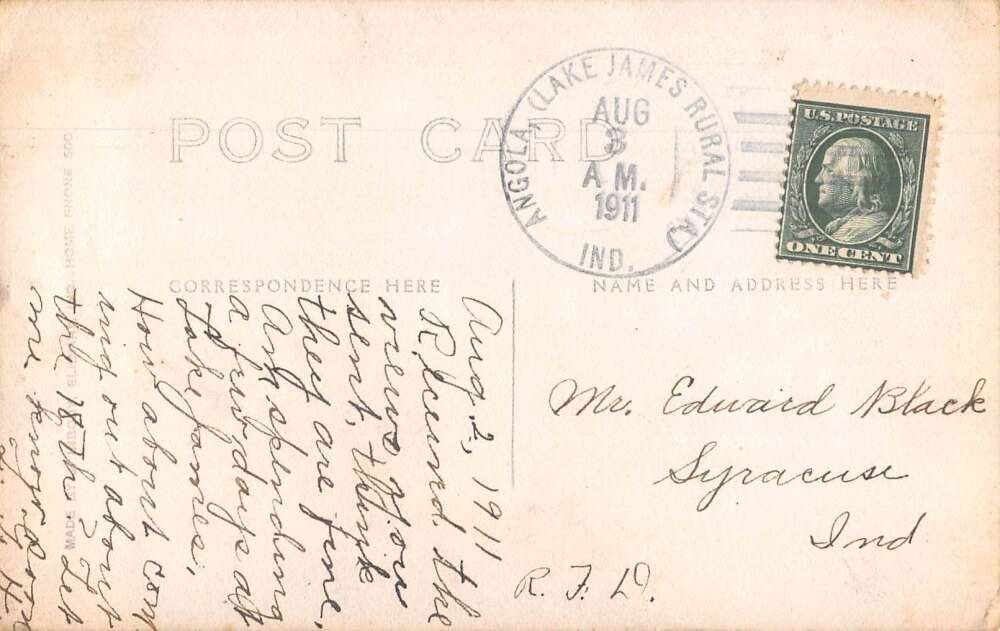 POST CARD
ANGOLA, (LAKE JAMES RURAL STA)
AUG
3
A M.
1911
IND.
U.S. POSTAGE
ONE CENT
CORRESPONDENCE HERE
NAME AND ADDRESS HERE
Aug 2, 1911
Received the
views you
sent, think
they are fine,
Am spending
a few days at
Lake James,
How about com
ing out about
the 18th Let
me know soon
Mr. Edward Black
Syracuse
Ind
R. F. D.
MADE
HOME PHONE 500